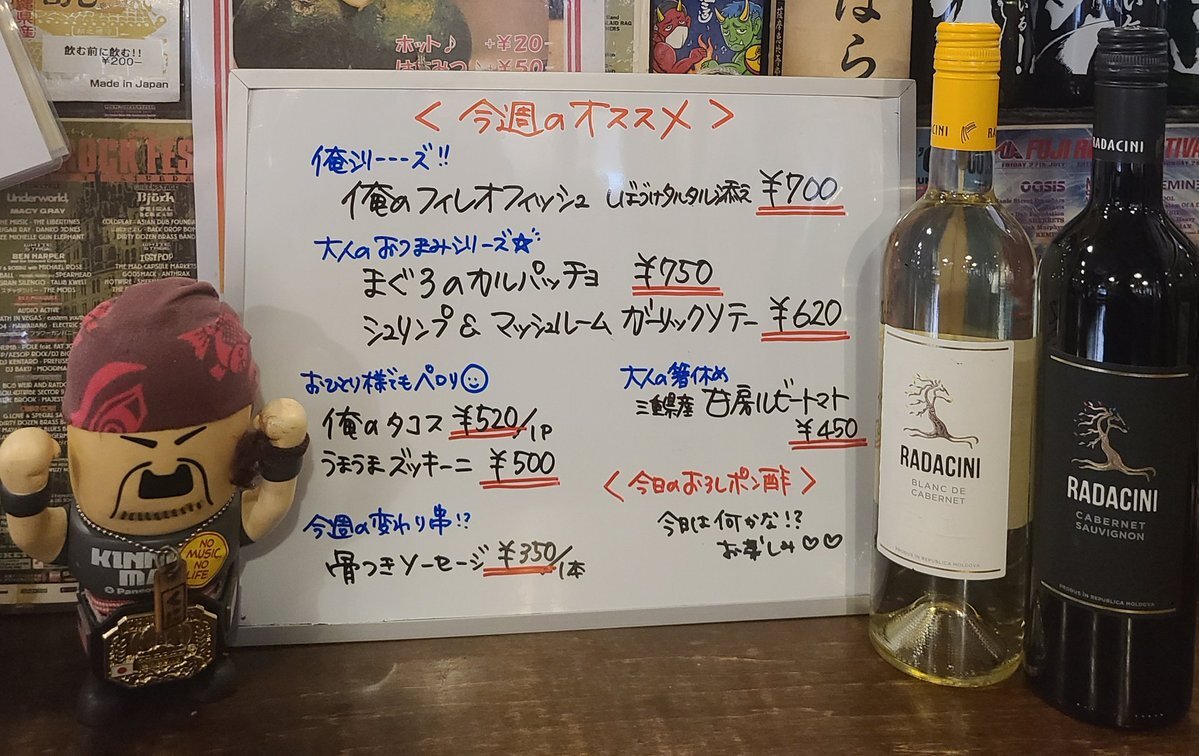 飲む前に飲む!!
¥200-
Made in Japan
ホット♪ +¥20-
はちみつ +¥50-
ほら
<今週のオススメ>
俺シリーーーズ!!
俺のフィレオフィッシュ しばづけタルタル添え ¥700
大人のおつまみシリーズ☆
まぐろのカルパッチョ ¥750
シュリンプ&マッシュルーム ガーリックソテー ¥620
おひとり様でもペロリ☺
俺のタコス ¥520/1P
うまうまズッキーニ ¥500
今週の変わり串!?
骨つきソーセージ ¥350/1本
大人の箸休め
三重県産 甘房ルビートマト
¥450
<今日のおろしポン酢>
今日は何かな!?
お楽しみ♡♡
Underworld
MACY GRAY
Björk
BEN HARPER
IGGY POP
NO
MUSIC,
NO
LIFE
RADACINI
BLANC DE
CABERNET
PRODUS IN REPUBLICA MOLDOVA
RADACINI
RADACINI
CABERNET
SAUVIGNON
PRODUS ÎN REPUBLICA MOLDOVA
OASIS